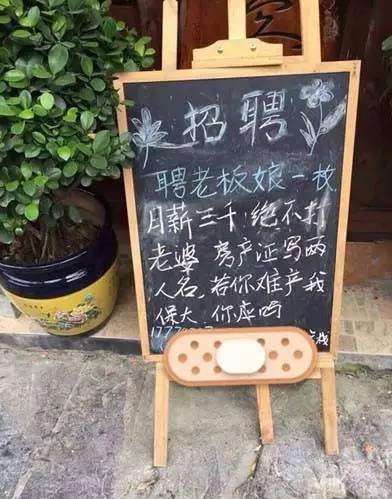 招聘
聘老板娘一枚
月薪三千!绝不打
老婆 房产证写两
人名,若你难产我
保大,你应吗